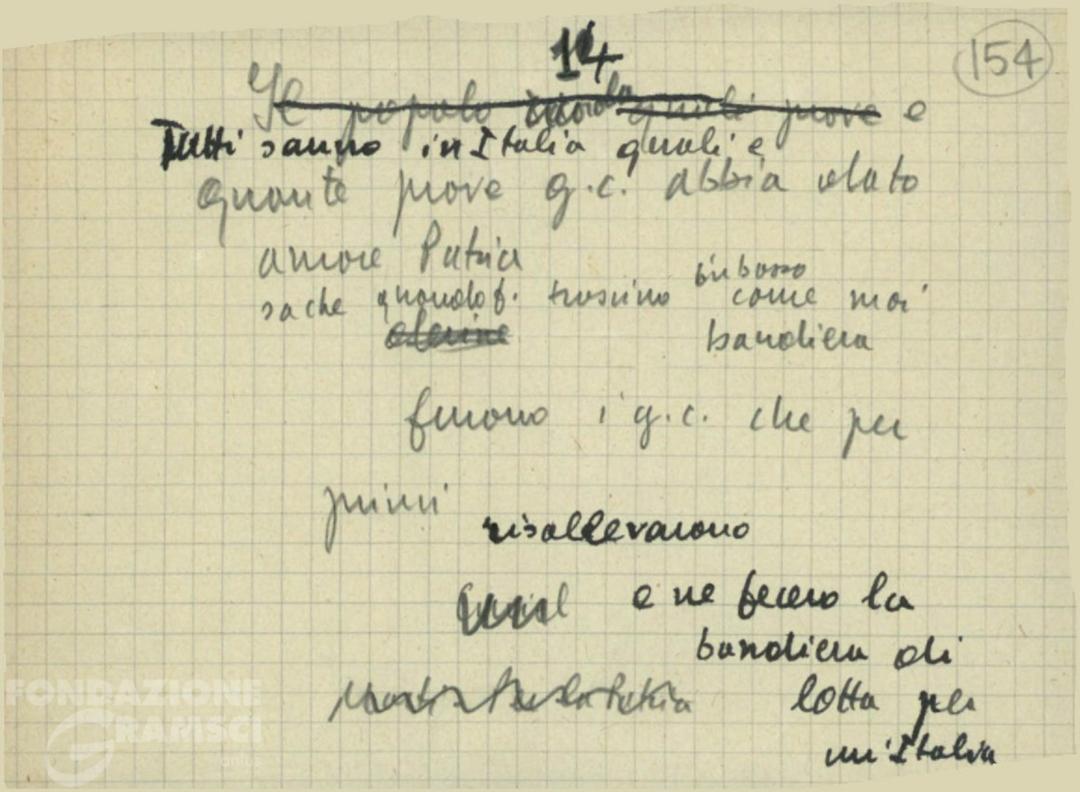 14
154
Il popolo ricorda quali prove e
Tutti sanno in Italia quali e
quante prove g.c. abbia dato
amore Patria
sa che quando f. trascinò in basso come mai
bandiera
furono i g.c. che per
primi
risollevarono
e ne fecero la
bandiera di
lotta per
un'Italia
FONDAZIONE
GRAMSCI
onlus